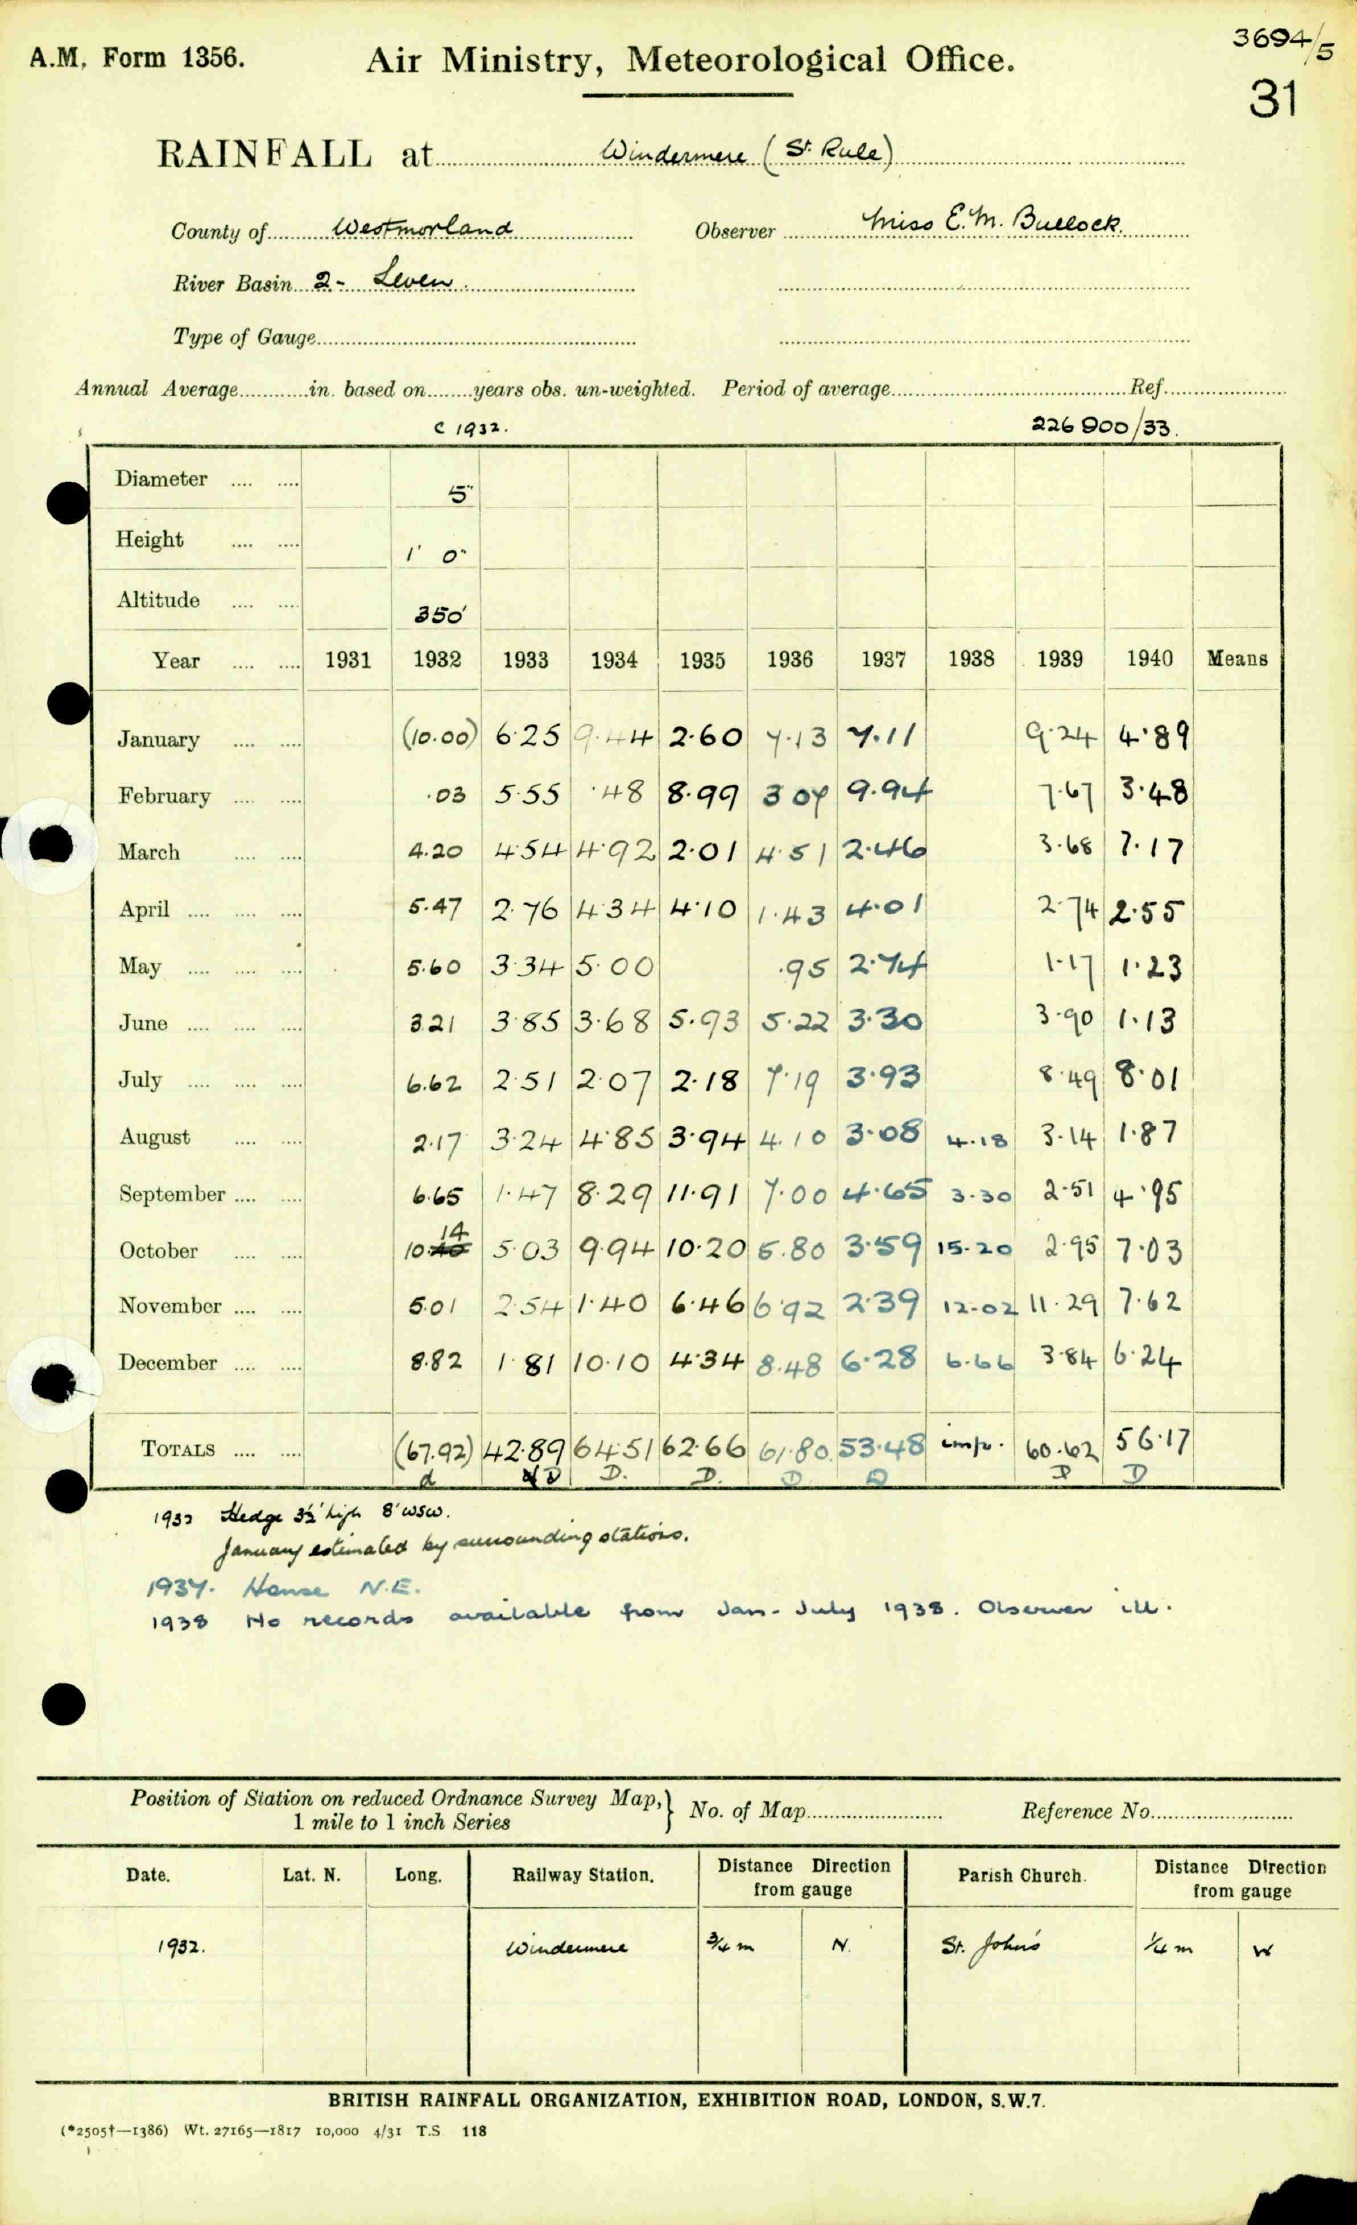 3694/5
A.M. Form 1356. Air Ministry, Meteorological Office.
31
RAINFALL at Windermere (St. Rule)
County of Westmorland Observer Miss E.M. Bullock.
River Basin 2- Leven.
Type of Gauge
Annual Average in. based on years obs. un-weighted. Period of average Ref.
c 1932. 226900/33.
Diameter 5"
Height 1' 0"
Altitude 350'
Year 1931 1932 1933 1934 1935 1936 1937 1938 1939 1940 Means
January (10.00) 6.25 9.44 2.60 7.13 7.11 9.24 4.89
February .03 5.55 .48 8.99 3.07 9.94 7.67 3.48
March 4.20 4.54 4.92 2.01 4.51 2.46 3.68 7.17
April 5.47 2.76 4.34 4.10 1.43 4.01 2.74 2.55
May 5.60 3.34 5.00 .95 2.74 1.17 1.23
June 3.21 3.85 3.68 5.93 5.22 3.30 3.90 1.13
July 6.62 2.51 2.07 2.18 7.19 3.93 8.49 8.01
August 2.17 3.24 4.85 3.94 4.10 3.08 4.18 3.14 1.87
September 6.65 1.47 8.29 11.91 7.00 4.65 3.30 2.51 4.95
14
October 10.40 5.03 9.94 10.20 5.80 3.59 15.20 2.95 7.03
November 5.01 2.54 1.40 6.46 6.92 2.39 12.02 11.29 7.62
December 8.82 1.81 10.10 4.34 8.48 6.28 6.66 3.84 6.24
TOTALS (67.92) 42.89 64.51 62.66 61.80 53.48 imp. 60.62 56.17
d D D. D. D D D D
1932 Hedge 3½' high 8' WSW.
January estimated by surrounding stations.
1937. House N.E.
1938 No records available from Jan- July 1938. Observer ill.
Position of Station on reduced Ordnance Survey Map,} No. of Map Reference No.
1 mile to 1 inch Series
Date. Lat. N. Long. Railway Station. Distance Direction from gauge Parish Church. Distance Direction from gauge
1932. Windermere ¾ m N. St. John's ¼ m W
BRITISH RAINFALL ORGANIZATION, EXHIBITION ROAD, LONDON, S.W.7.
(*2505†—1386) Wt. 27165—1817 10,000 4/31 T.S 118